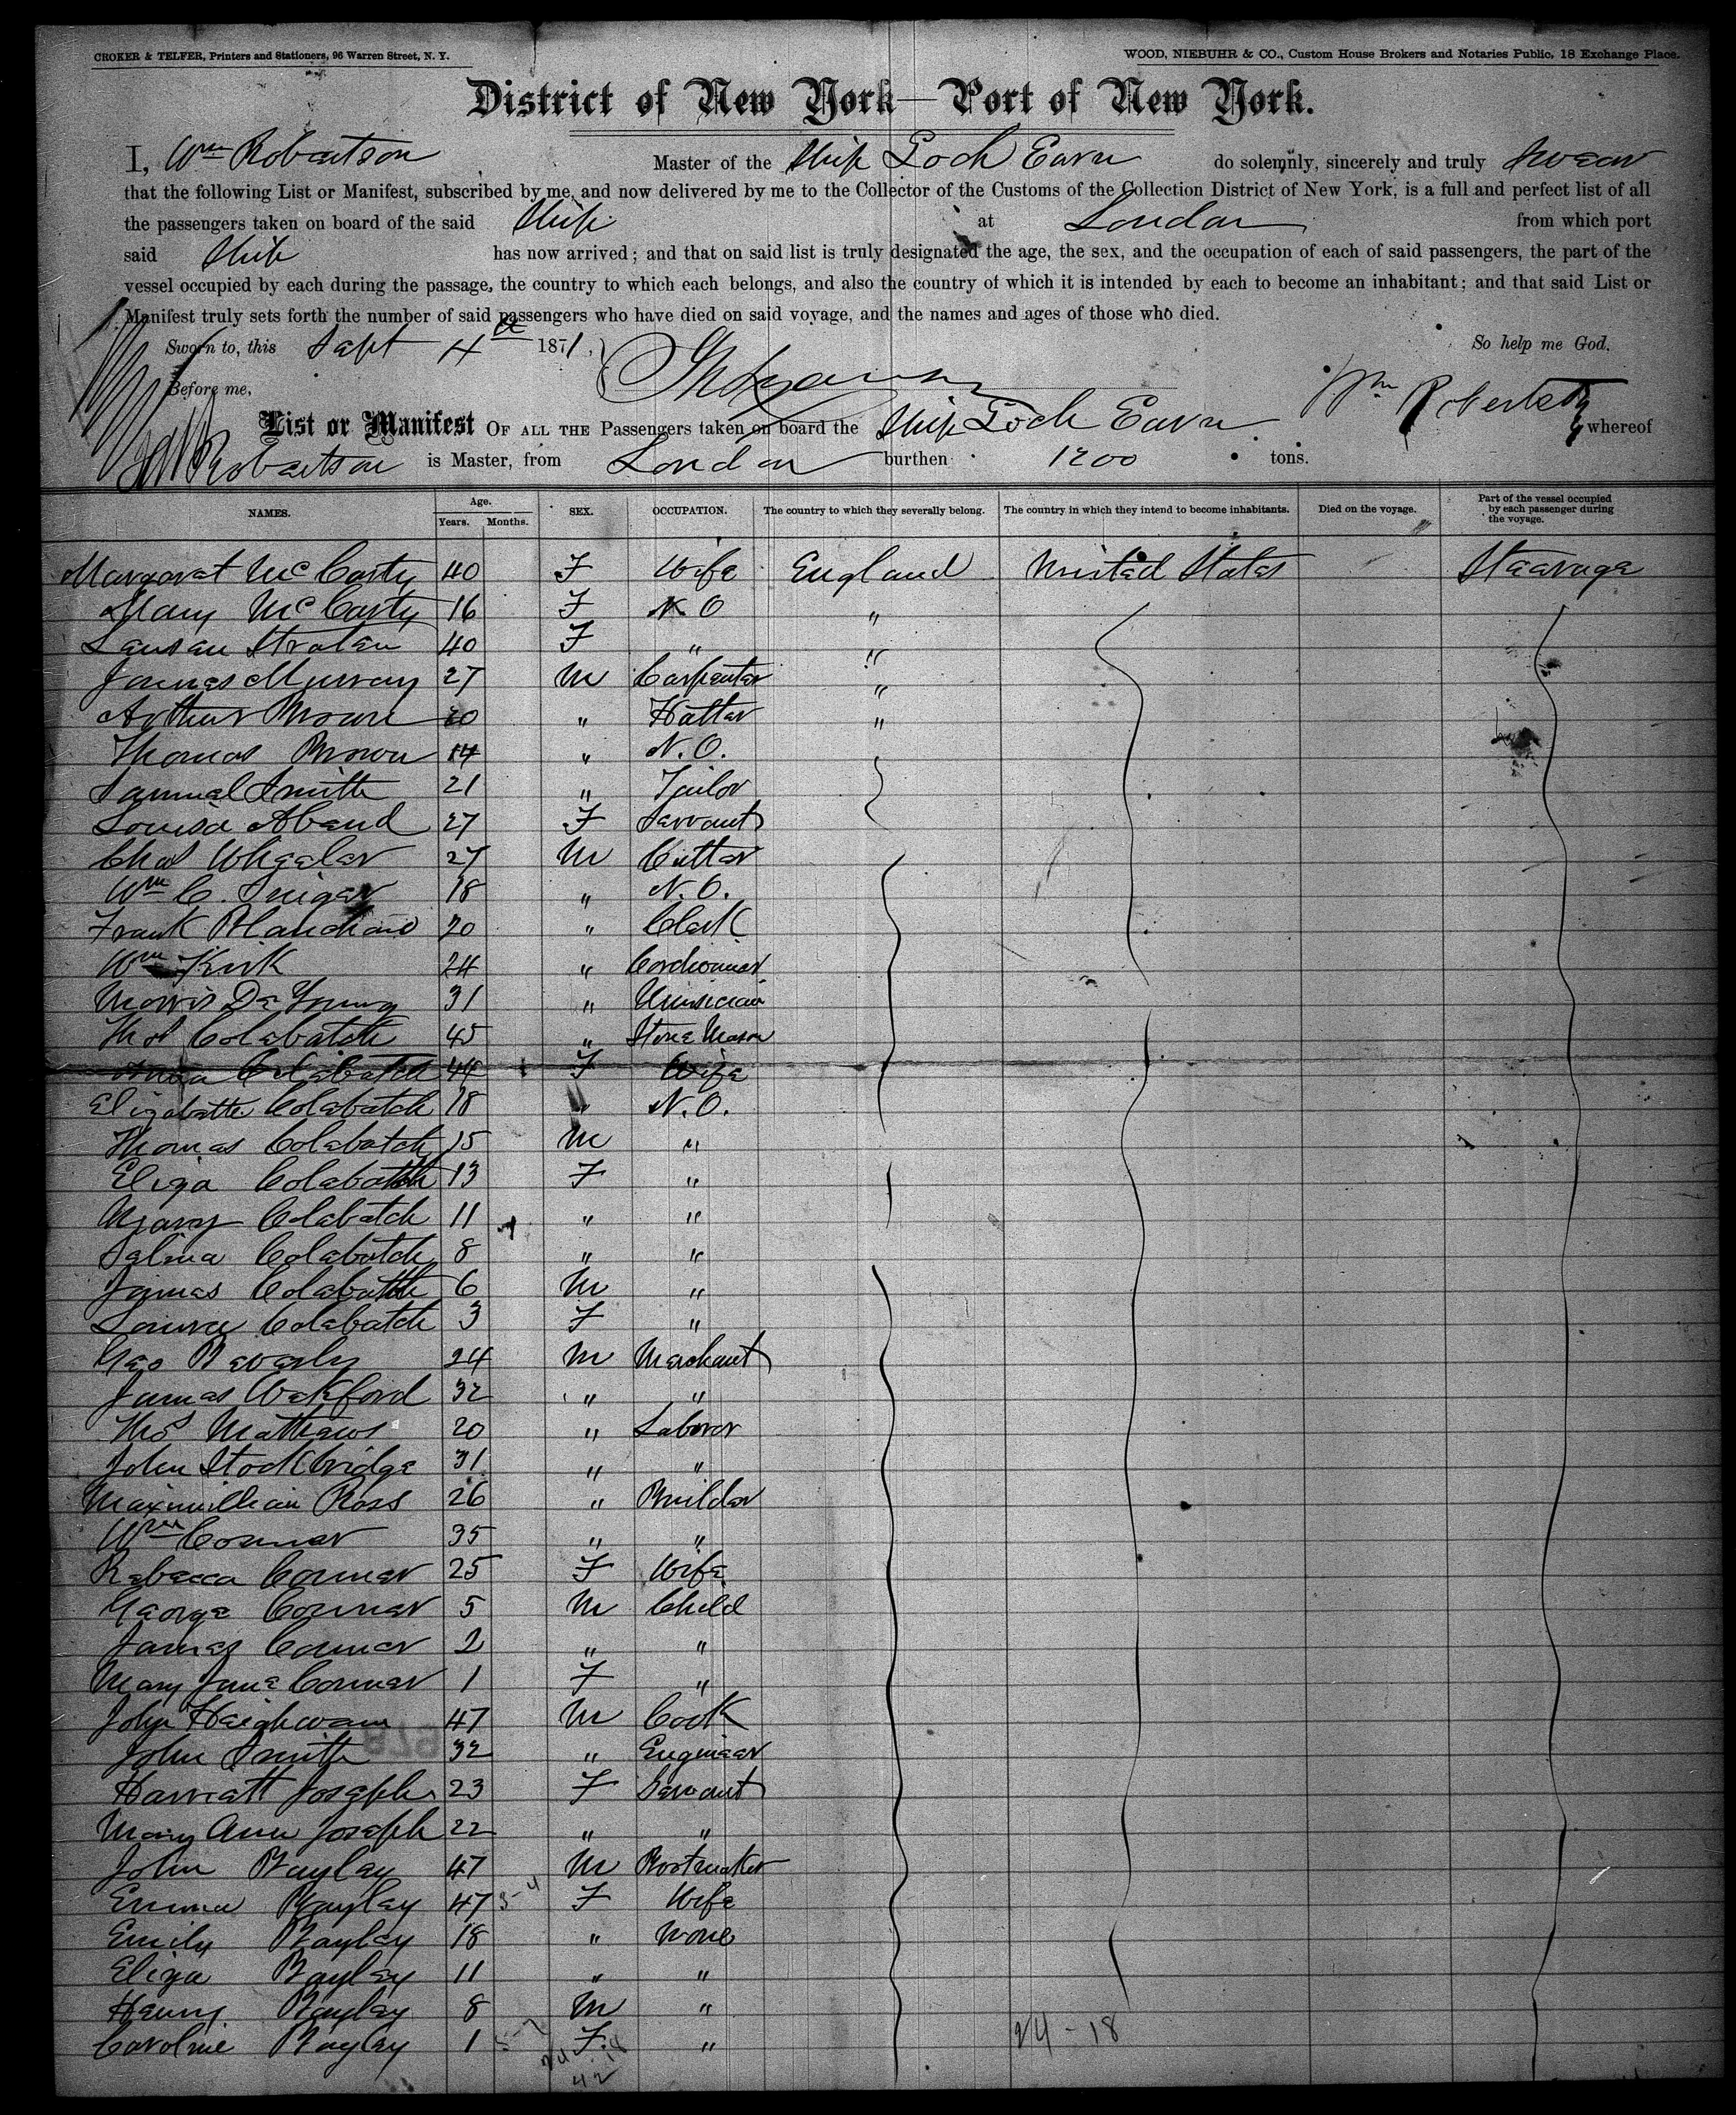 CROKER & TELFER, Printers and Stationers, 96 Warren Street, N. Y. WOOD, NIEBUHR & CO., Custom House Brokers and Notaries Public, 18 Exchange Place.
District of New York—Port of New York.
I, Wm Robertson Master of the Ship Loch Earn do solemnly, sincerely and truly swear
that the following List or Manifest, subscribed by me, and now delivered by me to the Collector of the Customs of the Collection District of New York, is a full and perfect list of all
the passengers taken on board of the said Ship at London from which port
said Ship has now arrived; and that on said list is truly designated the age, the sex, and the occupation of each of said passengers, the part of the
vessel occupied by each during the passage, the country to which each belongs, and also the country of which it is intended by each to become an inhabitant; and that said List or
Manifest truly sets forth the number of said passengers who have died on said voyage, and the names and ages of those who died.
Sworn to, this Sept 4th 1871, So help me God.
Before me, Wm Robertson
List or Manifest OF ALL THE Passengers taken on board the Ship Loch Earn whereof
Wm Robertson is Master, from London burthen 1200 tons.
NAMES. Age. Years. Months. SEX. OCCUPATION. The country to which they severally belong. The country in which they intend to become inhabitants. Died on the voyage. Part of the vessel occupied by each passenger during the voyage.
Margaret McCarty 40 F Wife England United States Steerage
Mary McCarty 16 F N O "
40 F " "
James Murray 27 M Carpenter "
Arthur Brown 20 " Hatter "
Thomas Brown 14 " N. O.
Samuel Smith 21 " Tailor
Louisa Abend 27 F Servant
Chas Wheeler 27 M Cutter
Wm C. 18 " N. O.
Frank Blanchard 20 " Clerk
Wm Kirk 24 " Cordwainer
Morris De Young 31 " Musician
Thos Colebatch 45 " Stone Mason
Anna Colebatch 44 F Wife
Elizabeth Colebatch 18 " N. O.
Thomas Colebatch 15 M "
Eliza Colebatch 13 F "
Mary Colebatch 11 " "
Selina Colebatch 8 " "
James Colebatch 6 M "
Colebatch 3 F "
Geo Beverly 24 M Merchant
James Wekford 32 " "
Thos Mathews 20 " Laborer
John Stockbridge 31 " "
Maximillian Ross 26 " Builder
Wm Conner 35 " "
Rebecca Conner 25 F Wife
George Conner 5 M Child
James Conner 2 " "
Mary Jane Conner 1 F "
John Heighwam 47 M Cook
John Smith 32 " Engineer
Harriett Joseph 23 F Servant
Mary Ann Joseph 22 " "
John Bayley 47 M Bootmaker
Emma Bayley 47 F Wife
Emily Bayley 18 " None
Eliza Bayley 11 " "
Henry Bayley 8 M "
Caroline Bayley 1 F "
24-18
42